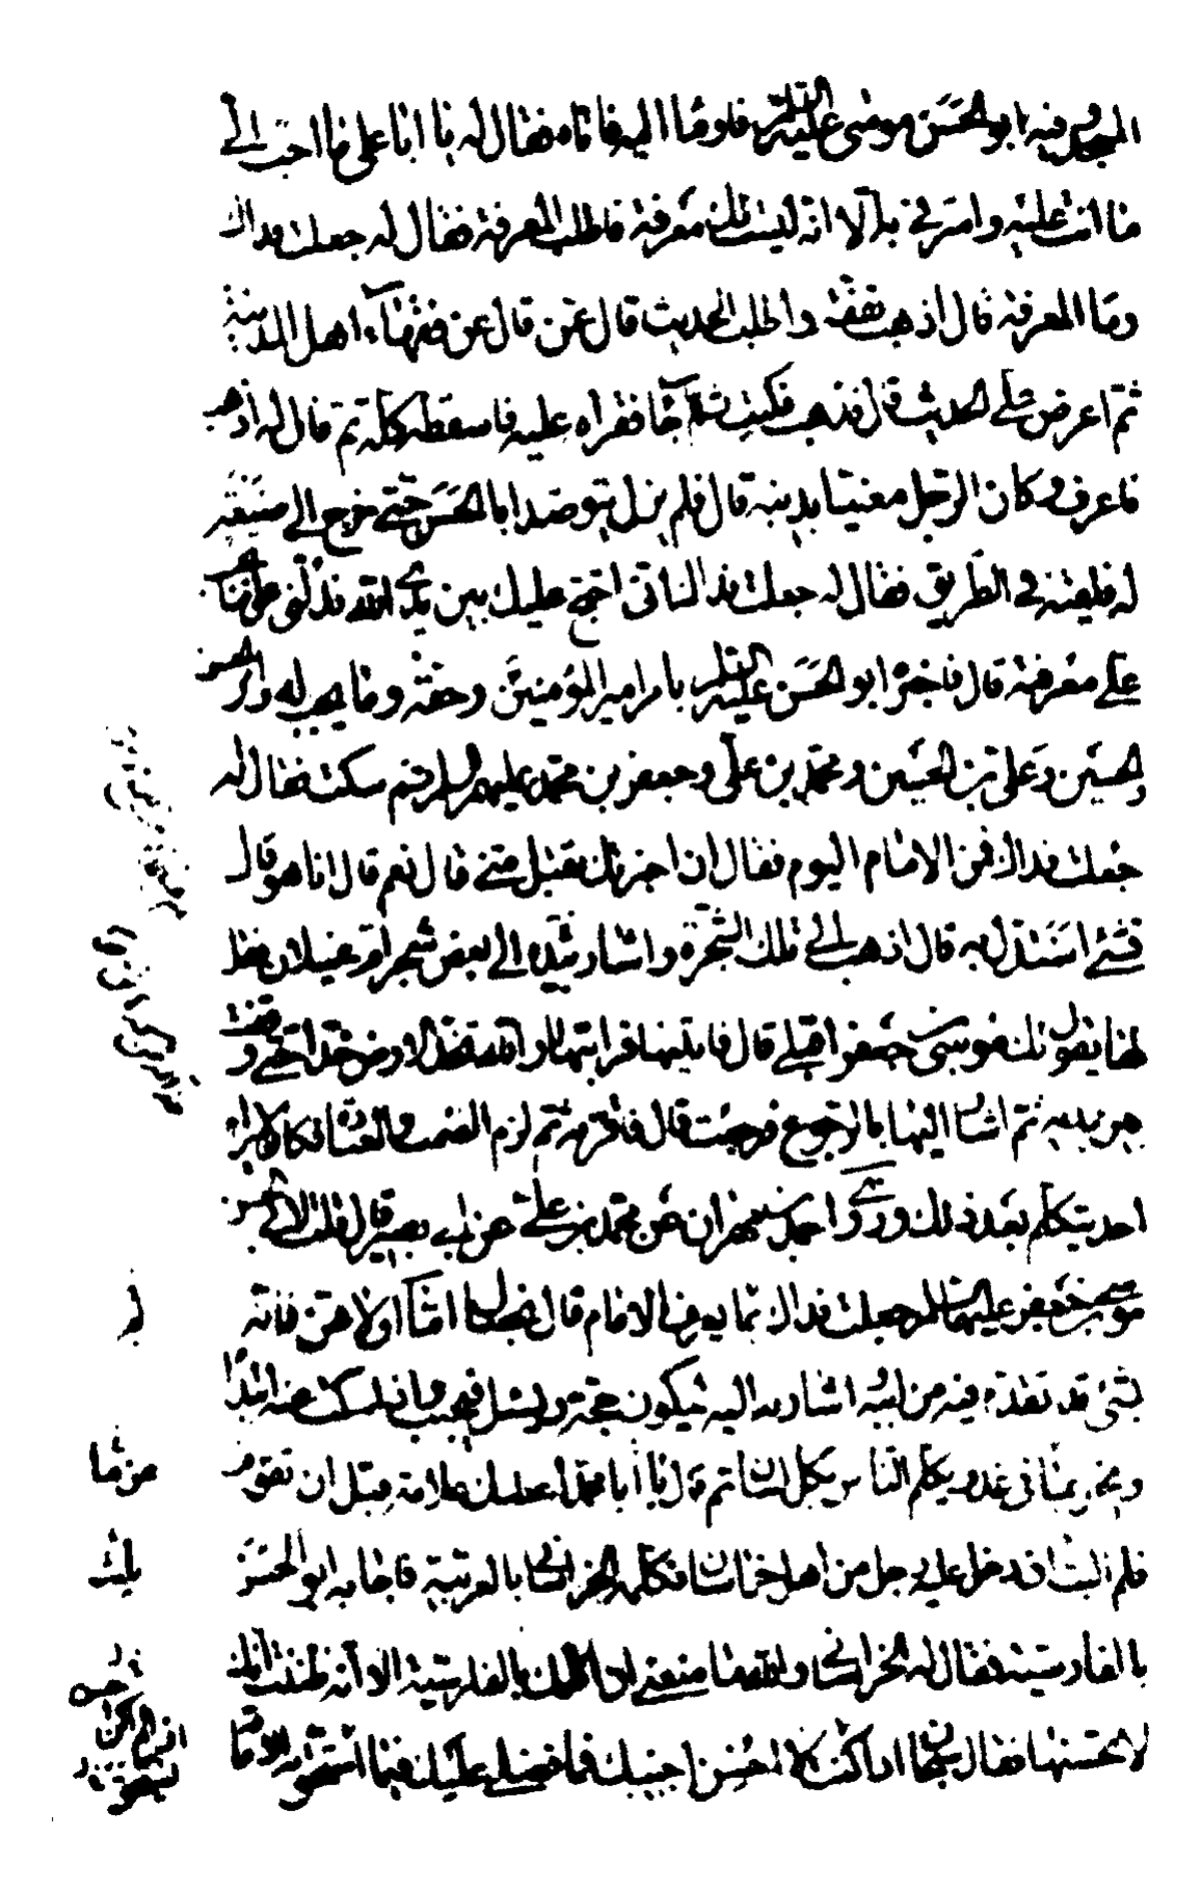 المجلس فيه ابو الحسن موسى عليه السلم فاومأ اليه فاتاه فقال له يا ابا علي ما احب الي
ما انت عليه واسرني به الا انه ليست لك معرفة فاطلب المعرفة فقال له جعلت فداك
وما المعرفة قال اذهب تفقه واطلب الحديث قال عن قال عن فقهاء اهل المدينة
ثم اعرض علي الحديث قال فذهب فكتب ثم جاء فقراه عليه فاسقطه كله ثم قال له اذهب
فاعرف وكان الرجل معنيا بدينه قال فلم يزل يترصد ابا الحسن حتى خرج الى ضيعة
له فلقيه في الطريق فقال له جعلت فداك اني احتج عليك بين يدي الله فدلني على ما
علي معرفته قال فاخبره ابو الحسن عليه السلم بامر امير المؤمنين وحقه وما يجب له وامر الحسن
والحسين وعلي بن الحسين ومحمد بن علي وجعفر بن محمد عليهم السلم ثم سكت فقال له
جعلت فداك فمن الامام اليوم فقال ان اخبرتك تقبل مني قال نعم قال انا هو قال
فشئ استدل به قال اذهب الى تلك الشجرة واشار بيده الى بعض شجر ام غيلان فقل
لها يقول لك موسى بن جعفر اقبلي قال فاتيتها فرايتها والله تخد الارض خدا حتى وقفت
بين يديه ثم اشار اليها بالرجوع فرجعت قال فاقر به ثم لزم الصمت والعبادة فكان لا يراه
احد يتكلم بعد ذلك وروى احمد بن مهران عن محمد بن علي عن ابي بصير قال قلت لابي الحسن
موسى بن جعفر عليهما السلم جعلت فداك بما يعرف الامام قال بخصال اما اولاهن فانه
بشئ قد تقدم فيه من ابيه اشارته اليه ليكون حجة ويسئل فيجيب واذا سكت عنه ابتدا
ويخبر بما في غد ويكلم الناس بكل لسان ثم قال يا ابا محمد اعطيك علامة قبل ان تقوم
فلم البث ان دخل عليه رجل من اهل خراسان فكلمه الخراساني بالعربية فاجابه ابو الحسن
بالفارسية فقال له الخراساني والله ما منعني ان اكلمك بالفارسية الا انه ظننت انك
لا تحسنها فقال سبحان الله اذا كنت لا احسن اجيبك فما فضلي عليك فيما استحق به الامامة